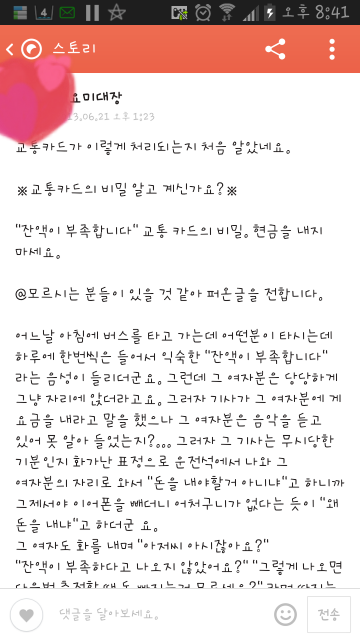 4 오후 8:41
스토리
요미대장
13.06.21 오후 1:23
교통카드가 이렇게 처리되는지 처음 알았네요.
※교통카드의 비밀 알고 계신가요?※
"잔액이 부족합니다" 교통 카드의 비밀. 현금을 내지
마세요.
@모르시는 분들이 있을 것 같아 퍼온글을 전합니다.
어느날 아침에 버스를 타고 가는데 어떤분이 타시는데
하루에 한번씩은 들어서 익숙한 "잔액이 부족합니다"
라는 음성이 들리더군요. 그런데 그 여자분은 당당하게
그냥 자리에 앉더라고요. 그러자 기사가 그 여자분에 게
요금을 내라고 말을 했으나 그 여자분은 음악을 듣고
있어 못 알아 들었는지?... 그러자 그 기사는 무시당한
기분인지 화가난 표정으로 운전석에서 나와 그
여자분의 자리로 와서 "돈을 내야할거 아니냐"고 하니까
그제서야 이어폰을 빼더니 어처구니가 없다는 듯이 "왜
돈을 내냐"고 하더군 요.
그 여자도 화를 내며 "아저씨 아시잖아요?"
"잔액이 부족하다고 나오지 않았어요?" "그렇게 나오면
댓글을 달아보세요.
전송